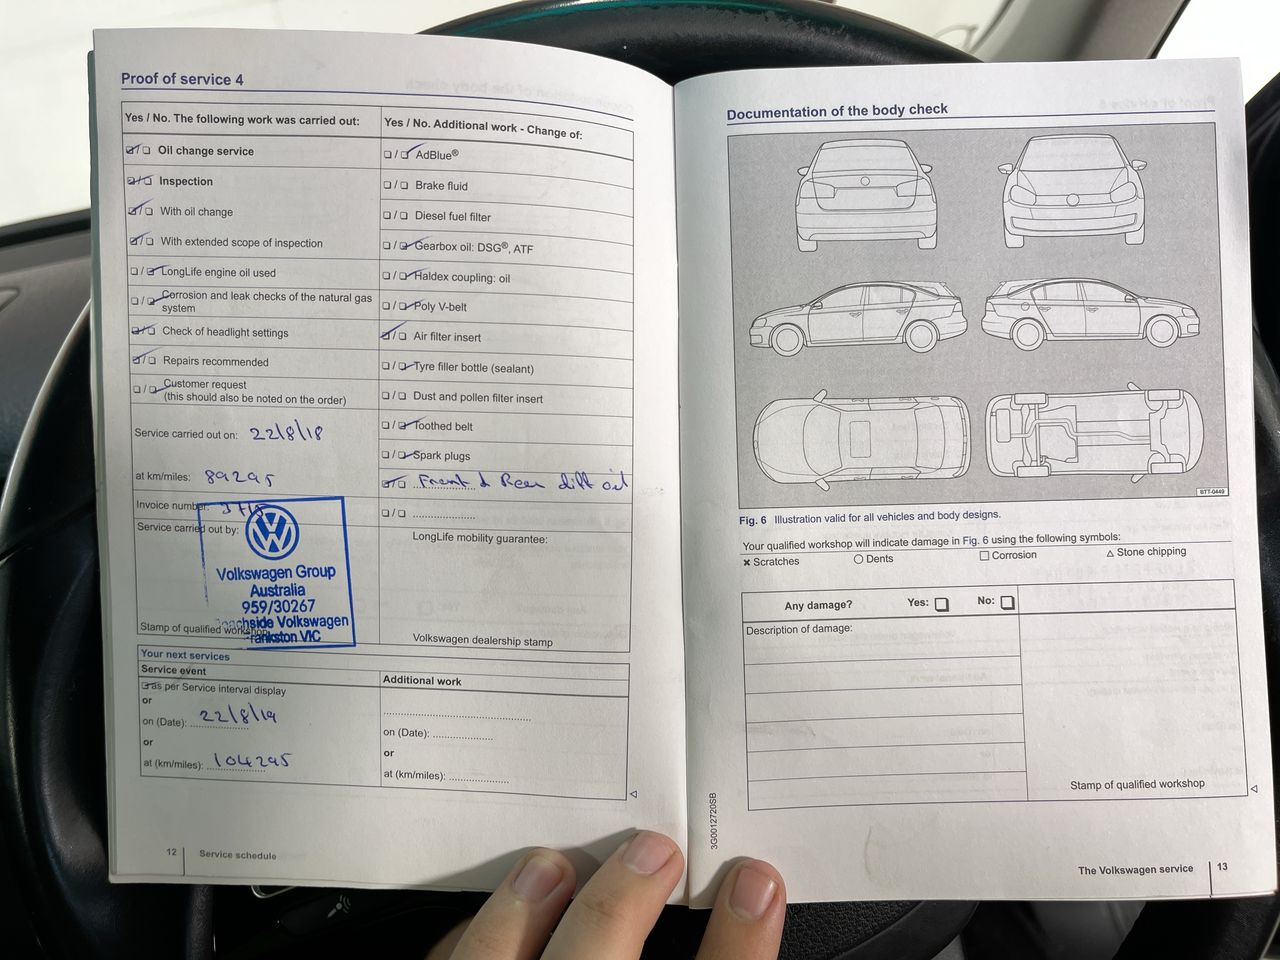 Proof of service 4
Yes / No. The following work was carried out:
Oil change service
Inspection
With oil change
With extended scope of inspection
LongLife engine oil used
Corrosion and leak checks of the natural gas
system
Check of headlight settings
Repairs recommended
Customer request
(this should also be noted on the order)
Service carried out on: 22/8/18
at km/miles: 89295
Invoice number:
Service carried out by:
Volkswagen Group
Australia
959/30267
Volkswagen
VIC
Stamp of qualified workshop
Yes / No. Additional work - Change of:
AdBlue®
Brake fluid
Diesel fuel filter
Gearbox oil: DSG®, ATF
Haldex coupling: oil
Poly V-belt
Air filter insert
Tyre filler bottle (sealant)
Dust and pollen filter insert
Toothed belt
Spark plugs
Front & Rear diff oil
LongLife mobility guarantee:
Volkswagen dealership stamp
Your next services
Service event
as per Service interval display
or
on (Date): 22/8/19
or
at (km/miles): 104295
Additional work
on (Date):
or
at (km/miles):
12 Service schedule
Documentation of the body check
BTT-0449
Fig. 6 Illustration valid for all vehicles and body designs.
Your qualified workshop will indicate damage in Fig. 6 using the following symbols:
× Scratches ○ Dents □ Corrosion △ Stone chipping
Any damage? Yes: No:
Description of damage:
Stamp of qualified workshop
3G0012720SB
The Volkswagen service 13